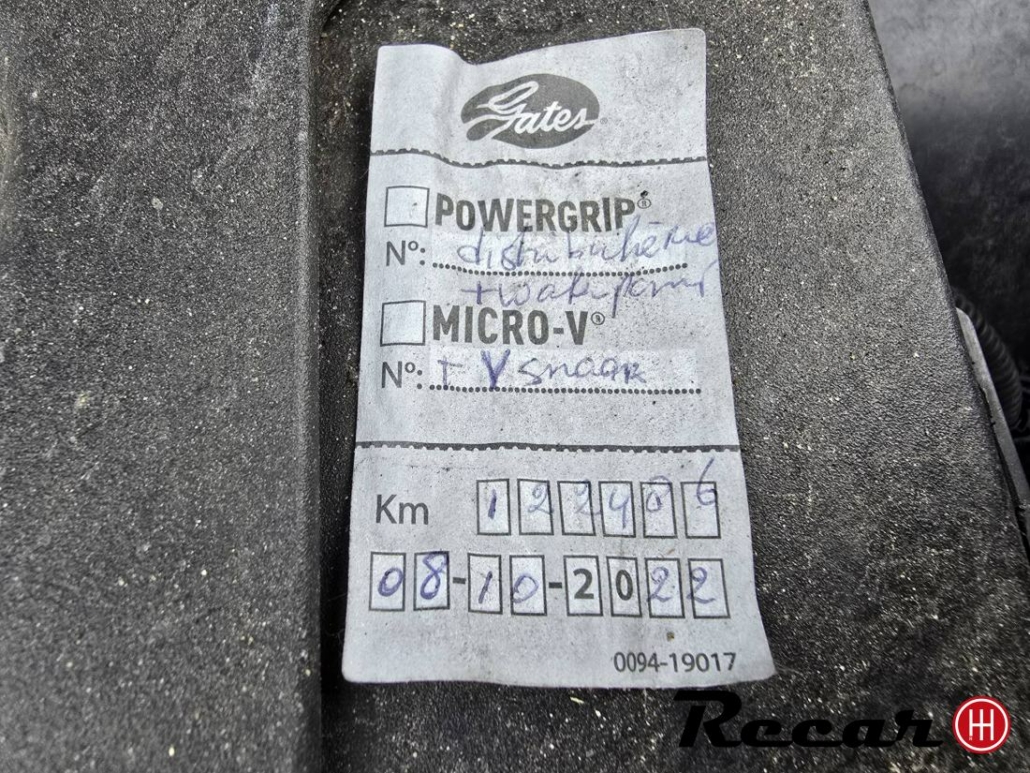 Gates
POWERGRIP®
Nº: distributieriem
+ waterpomp
MICRO-V®
Nº: + V snaar
Km 122486
08-10-2022
0094-19017
Recar